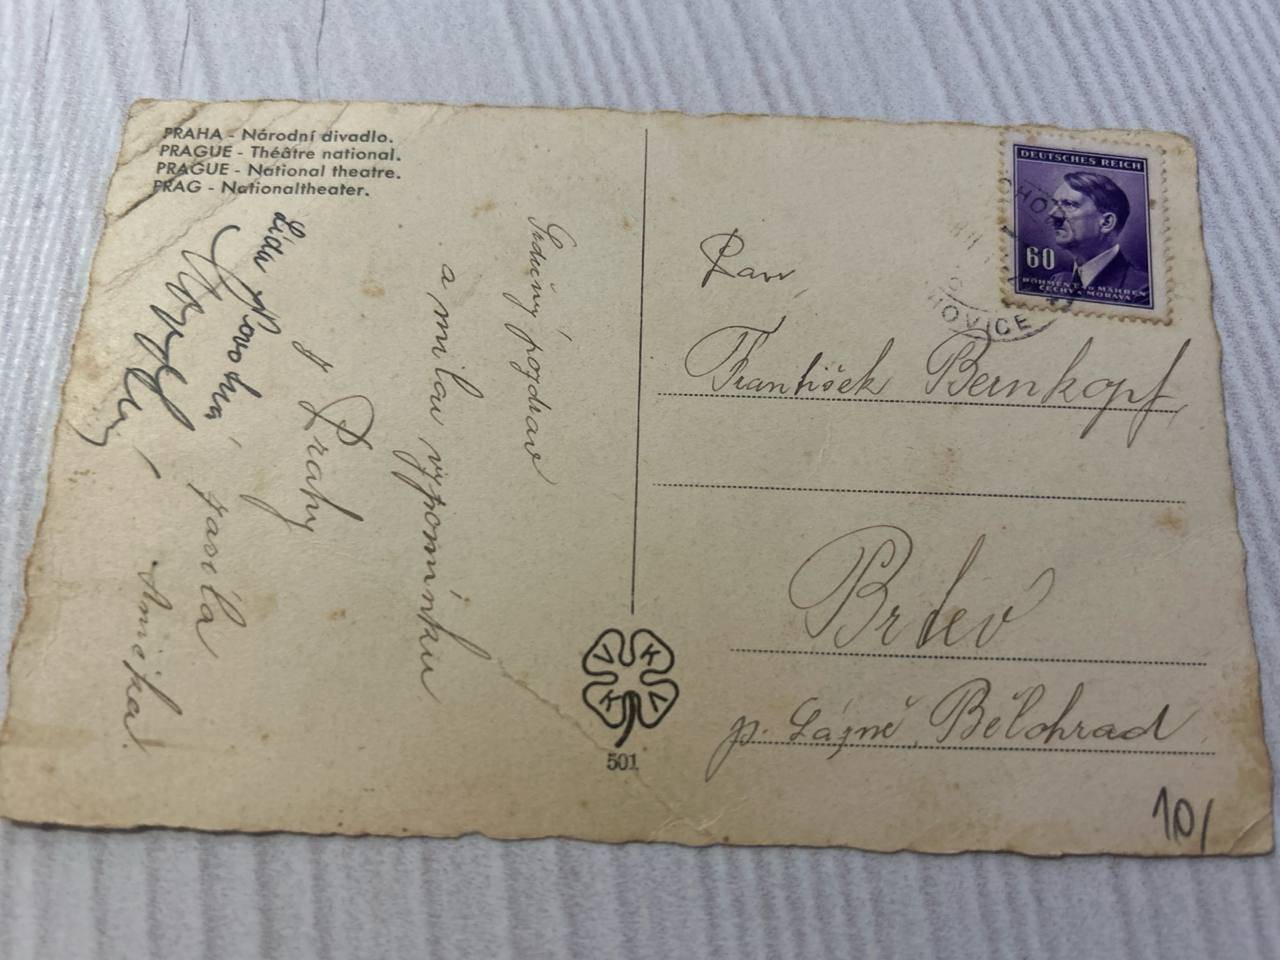 PRAHA - Národní divadlo.
PRAGUE - Théâtre national.
PRAGUE - National theatre.
PRAG - Nationaltheater.
Srdečný pozdrav
a milou vzpomínku
z Prahy
zasílá
Anička
Lída Novotná,
DEUTSCHES REICH
60
BÖHMEN u. MÄHREN
ČECHY a MORAVA
HOVICE
Pan
František Bernkopf,
Brtev
p. Lázně Bělohrad
VKKV
501
10/